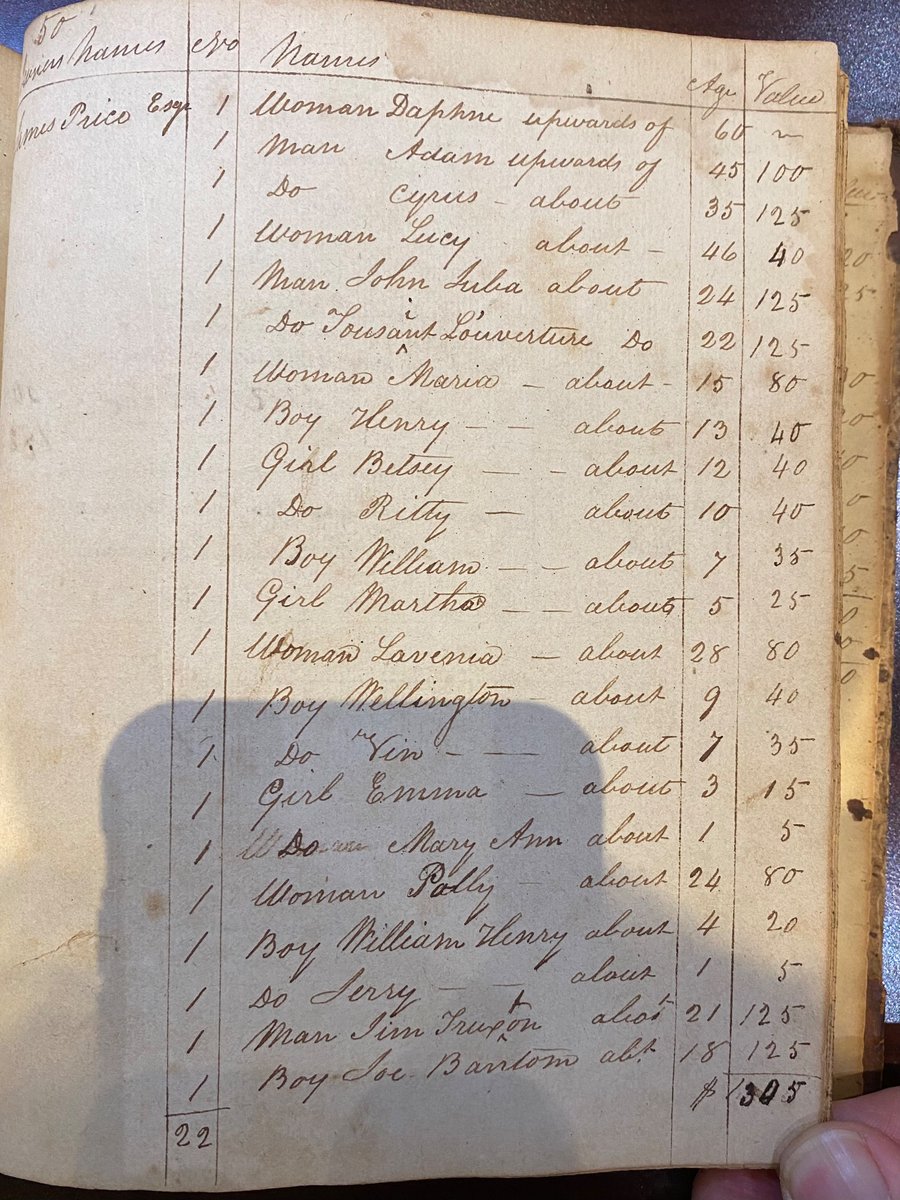 50
Names No Names Age Value
Price Esqr 1 Woman Daphne upwards of 60 ~
1 Man Adam upwards of 45 100
1 Do Cyrus - about 35 125
1 Woman Lucy - about - 46 40
1 Man John Juba about 24 125
1 Do Tousant Louverture Do 22 125
1 Woman Maria - about - 15 80
1 Boy Henry - - about 13 40
1 Girl Betsey - - about 12 40
1 Do Kitty - about 10 40
1 Boy William - - about 7 35
1 Girl Martha - - about 5 25
1 Woman Lavenia - about 28 80
1 Boy Wellington - about 9 40
1 Do Vin - - about 7 35
1 Girl Emma - about 3 15
1 Do Mary Ann about 1 5
1 Woman Polly - about 24 80
1 Boy William Henry about 4 20
1 Do Jerry - - about 1 5
1 Man Jim Truxton about 21 125
1 Boy Joe Bantom abt 18 125
22 $ 1305